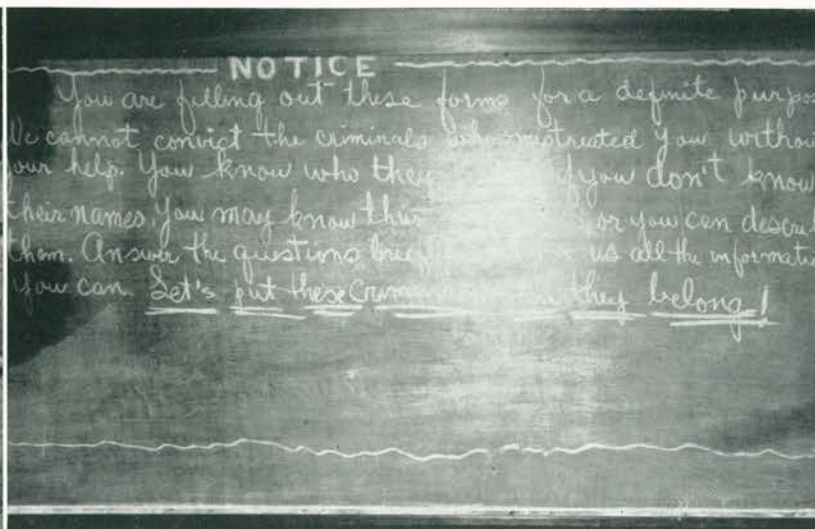 NOTICE
You are filling out these forms for a definite purpos
We cannot convict the criminals who mistreated you withou
your help. You know who they if you don't know
their names, you may know their or you can descri
them. Answer the questions us all the informati
you can. Let's put these they belong!